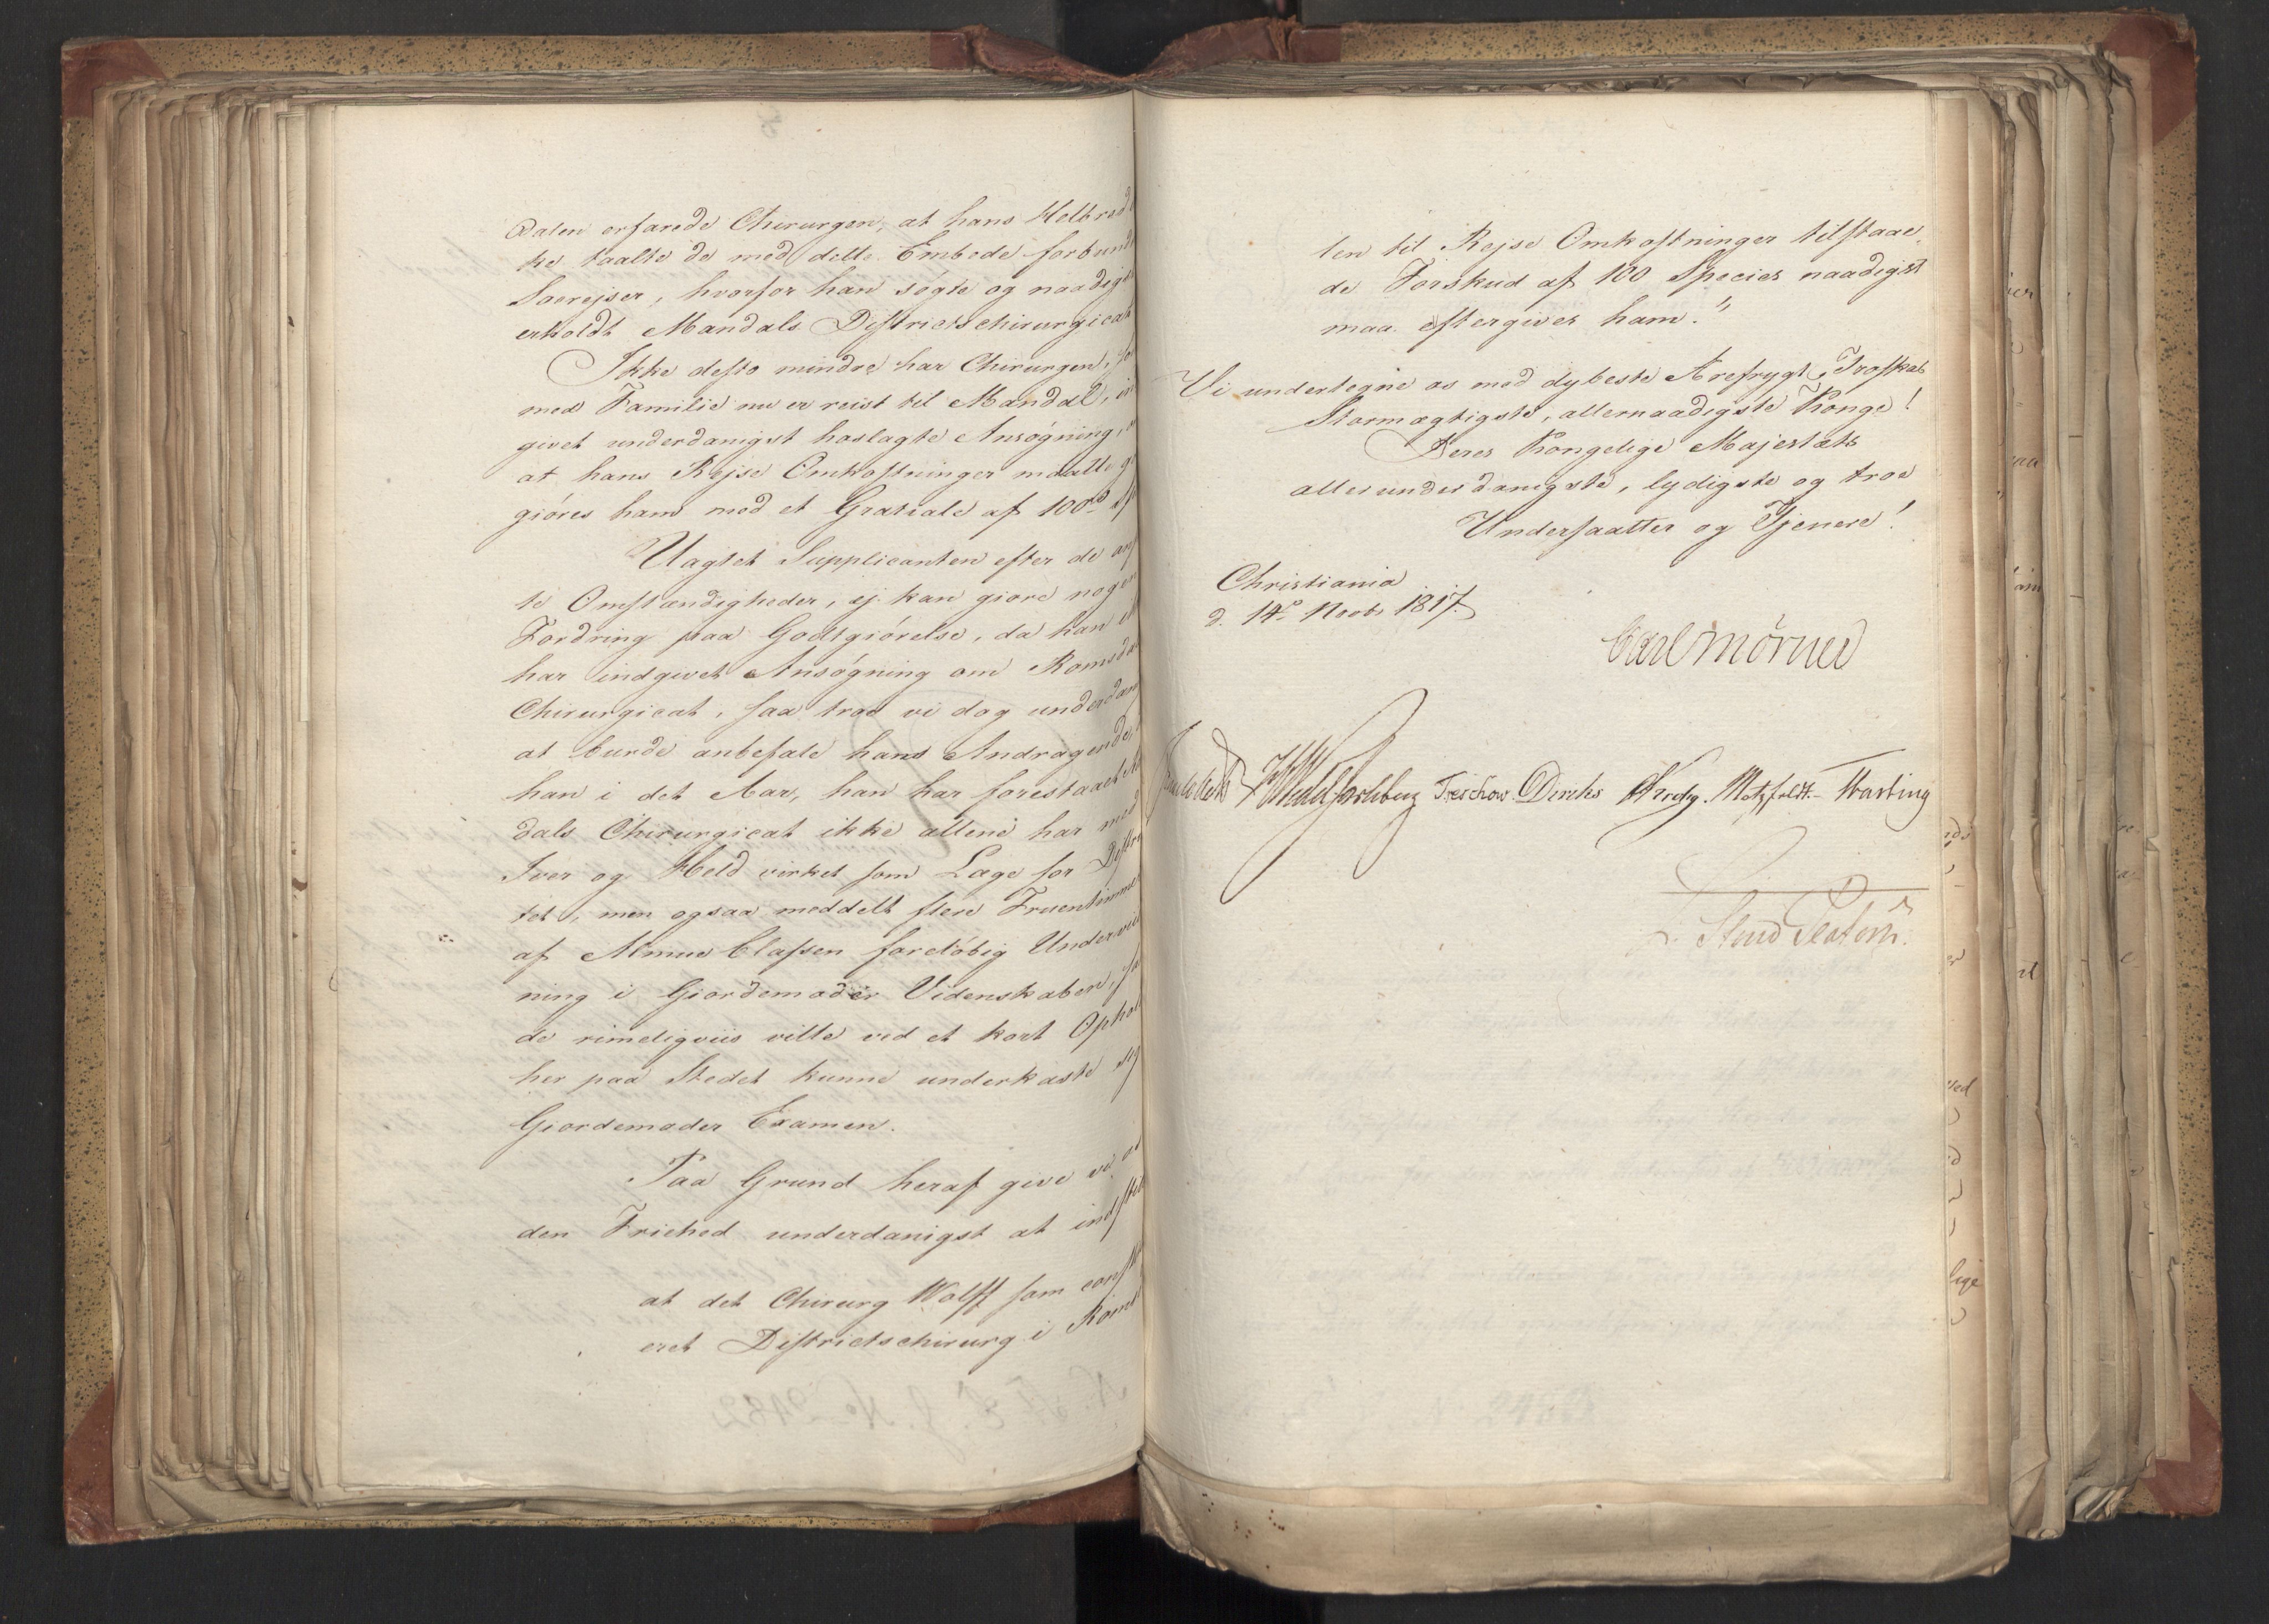 dalen erfarede Chirurgen, at hans Helbred
ke taalte de med dette Embede forbund
Søerejser, hvorfor han søgte og naadigst
erholdt Mandals Districtschirurgicat
Ikke desto mindre har Chirurgen, so
med Familie nu er reist til Mandal, in
givet underdanigst hoslagte Ansøgning, o
at hans Rejse Omkostninger maatte g
giøres ham med et Gratiale af 100rd Sp
Uagtet Supplicanten efter de anf
te Omstændigheder, ej kan giøre nogen
Fordring paa Godtgiørelse, da han
har indgivet Ansøgning om Romsda
Chirurgicat, saa troe vi dog underdan
at burde anbefale hans Andragende,
han i det Aar, han har forestaaet
dals Chirurgicat ikke allene har med
Iver og Held virket som Læge for Distri
tet, men ogsaa meddelt flere Fruentimme
af Almue Classen foreløbig Underviis
ning i Giordemoder Videnskaben, sa
de rimeligviis ville ved et kort Ophol
her paa Stedet kunne underkaste sig
Giordemoder Examen.
Paa Grund heraf give vi os
den Friehed underdanigst at indstil
at det Chirurg Wolff som const
eret Districtschirurg i Roms
ten til Rejse Omkostninger tilstaae
de Forskud af 100 Species naadigst
maa eftergives ham."
Vi undertegne os med dybeste Ærefrygt, Troskab
Stormægtigste, allernaadigste Konge!
Deres Kongelige Majestæts
allerunderdanigste, lydigste og troe
Undersaatter og Tjenere!
Christiania
d. 14de Novbr 1817.
Carl Mörner
Wedel Jarlsberg Treschow Diriks Krog. Motzfeldt. Fasting